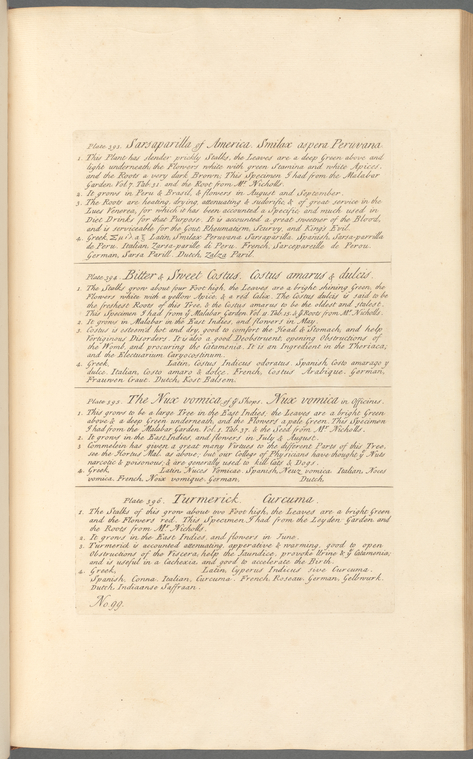 Plate 393. Sarsaparilla of America. Smilax aspera Peruvana
1. This Plant has slender prickly Stalks, the Leaves are a deep Green above and
light underneath, the Flowers white with green Stamina and white Apices,
and the Roots a very dark Brown; This Specimen I had from the Malabar
Garden Vol 7. Tab. 31. and the Root from Mr Nicholls.
2. It grows in Peru & Brasil, & flowers in August and September.
3. The Roots are heating, drying, attenuating & sudorific, & of great service in the
Lues Venerea, for which it has been accounted a Specific and much used in
Diet Drinks for that Purpose. It is accounted a great sweetner of the Blood,
and is serviceable for the Gout, Rheumatism, Scurvy, and Kings Evil.
4. Greek, Latin, Smilax Peruvana Sarsaparilla. Spanish, Sarsa-parrilla
de Peru. Italian, Zarsa-parille di Peru. French, Sarcepareille de Perou.
German, Sarsa Parill. Dutch, Zalza Paril.
Plate 394. Bitter & Sweet Costus. Costus amarus & dulcis.
1. The Stalks grow about four Foot high, the Leaves are a bright shining Green, the
Flowers white with a yellow Apice, & a red Calix. The Costus dulcis is said to be
the freshest Roots of this Tree, & the Costus amarus to be the oldest and stalest.
This Specimen I had from ye Malabar Garden Vol 11. Tab. 15. & ye Roots from Mr. Nicholls.
2. It grows in Malabar in the East Indies, and flowers in May.
3. Costus is esteem'd hot and dry, good to comfort the Head & Stomach, and help
Vertiginous Disorders. It is also a good Deobstruent, opening Obstructions of
the Womb, and procuring the Catamenia. It is an Ingredient in the Theriaca,
and the Electuarium Caryocostinum.
4. Greek, Latin, Costus Indicus odoratus. Spanish, Costo amarago y
dulce. Italian, Costo amaro & dolce. French, Costus Arabique. German,
Frauwen Craut. Dutch, Kost Balsem.
Plate 395. The Nux vomica of ye Shops. Nux vomica in Officines.
1. This grows to be a large Tree in the East Indies, the Leaves are a bright Green
above & a deep Green underneath, and the Flowers a pale Green. This Specimen
I had from the Malabar Garden, Vol. 1. Tab. 37. & the Seed from Mr. Nicholls.
2. It grows in the East Indies, and flowers in July & August.
3. Commelein has given a great many Virtues to the different Parts of this Tree,
see the Hortus Mal. as above; but our College of Physicians have thought ye Nuts
narcotic & poisonous, & are generally used to kill Cats & Dogs.
4. Greek, Latin, Nuces Vomicae. Spanish, Neuz vomica. Italian, Noces
vomica. French, Noix vomique. German, Dutch,
Plate 396. Turmerick. Curcuma.
1. The Stalks of this grow about two Foot high, the Leaves are a bright Green
and the Flowers red. This Specimen I had from the Leyden Garden and
the Roots from Mr. Nicholls.
2. It grows in the East Indies, and flowers in June.
3. Turmerick is accounted attenuating, apperative & warming, good to open
Obstructions of the Viscera, help the Jaundice, provoke Urine & ye Catamenia;
and is useful in a Cachexia, and good to accelerate the Birth.
4. Greek, Latin, Cyperus Indicus sive Curcuma.
Spanish, Conna. Italian, Curcuma. French, Roseau. German, Gelbwurk.
Dutch, Indiaanse Saffraan.
No. 99.